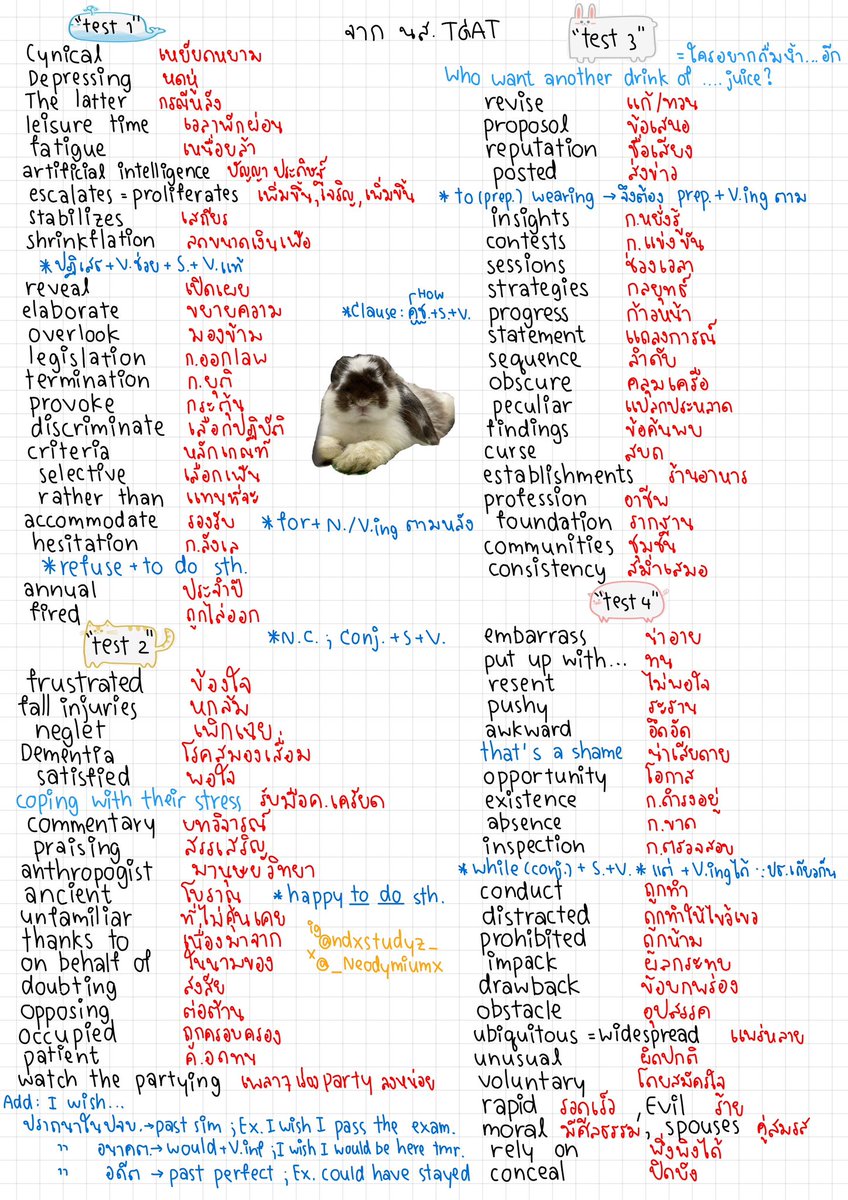 "test 1"
จาก นส. TGAT
Cynical เหยียดหยาม
Depressing หดหู่
The latter กรณีหลัง
leisure time เวลาพักผ่อน
fatigue เหนื่อยล้า
artificial intelligence ปัญญาประดิษฐ์
escalates = proliferates เพิ่มขึ้น, เจริญ, เพิ่มขึ้น
stabilizes เสถียร
shrinkflation ลดขนาดเงินเฟ้อ
*ปฏิเสธ + V.ช่วย + S. + V.แท้
reveal เปิดเผย
elaborate ขยายความ
How
*Clause: คช.+S+V.
overlook มองข้าม
legislation ก.ออกกฎ
termination ก.ยุติ
provoke กระตุ้น
discriminate เลือกปฏิบัติ
criteria หลักเกณฑ์
selective เลือกเฟ้น
rather than แทนที่จะ
accommodate รองรับ *for + N./V.ing ตามหลัง
hesitation ก.ลังเล
*refuse + to do sth.
annual ประจำปี
fired ถูกไล่ออก
*N.C. ; Conj. + S + V.
"test 2"
frustrated ข้องใจ
fall injuries หกล้ม
neglet เพิกเฉย
Dementia โรคสมองเสื่อม
satisfied พอใจ
coping with their stress รับมือค.เครียด
commentary บทวิจารณ์
praising สรรเสริญ
anthropogist มานุษยวิทยา
ancient โบราณ *happy to do sth.
unfamiliar ที่ไม่คุ้นเคย
thanks to เนื่องมาจาก
on behalf of ในนามของ
ig @ndxstudyz_
x @_Neodymiumx
doubting สงสัย
opposing ต่อต้าน
occupied ถูกครอบครอง
patient ค.อดทน
watch the partying เพลาๆ เรื่อง party ลงหน่อย
Add: I wish...
ปรารถนาในปจบ. → past sim ; Ex. I wish I pass the exam.
" อนาคต → would + V.inf ; I wish I would be here tmr.
" อดีต → past perfect ; Ex. could have stayed
"test 3"
= ใครอยากดื่มน้ำ...อีก
Who want another drink of .... juice?
revise แก้/ทวน
proposol ข้อเสนอ
reputation ชื่อเสียง
posted ส่งข่าว
*to (prep.) wearing → จึงต้อง prep. + V.ing ตาม
insights ก.หยั่งรู้
contests ก.แข่งขัน
sessions ช่วงเวลา
strategies กลยุทธ์
progress ก้าวหน้า
statement แถลงการณ์
sequence ลำดับ
obscure คลุมเครือ
peculiar แปลกประหลาด
findings ข้อค้นพบ
curse สบถ
establishments ร้านอาหาร
profession อาชีพ
foundation รากฐาน
communities ชุมชน
consistency สม่ำเสมอ
"test 4"
embarrass น่าอาย
put up with... ทน
resent ไม่พอใจ
pushy ระราน
awkward อึดอัด
that's a shame น่าเสียดาย
opportunity โอกาส
existence ก.ดำรงอยู่
absence ก.ขาด
inspection ก.ตรวจสอบ
*while (conj.) + S. + V. *แต่ + V.ing ได้ ∵ ปธ.เดียวกัน
conduct ถูกทำ
distracted ถูกทำให้ไขว้เขว
prohibited ถูกห้าม
impack ผลกระทบ
drawback ข้อบกพร่อง
obstacle อุปสรรค
ubiquitous = widespread แพร่หลาย
unusual ผิดปกติ
voluntary โดยสมัครใจ
rapid รวดเร็ว , Evil ร้าย
moral มีศีลธรรม , spouses คู่สมรส
rely on พึ่งพิงได้
conceal ปิดบัง